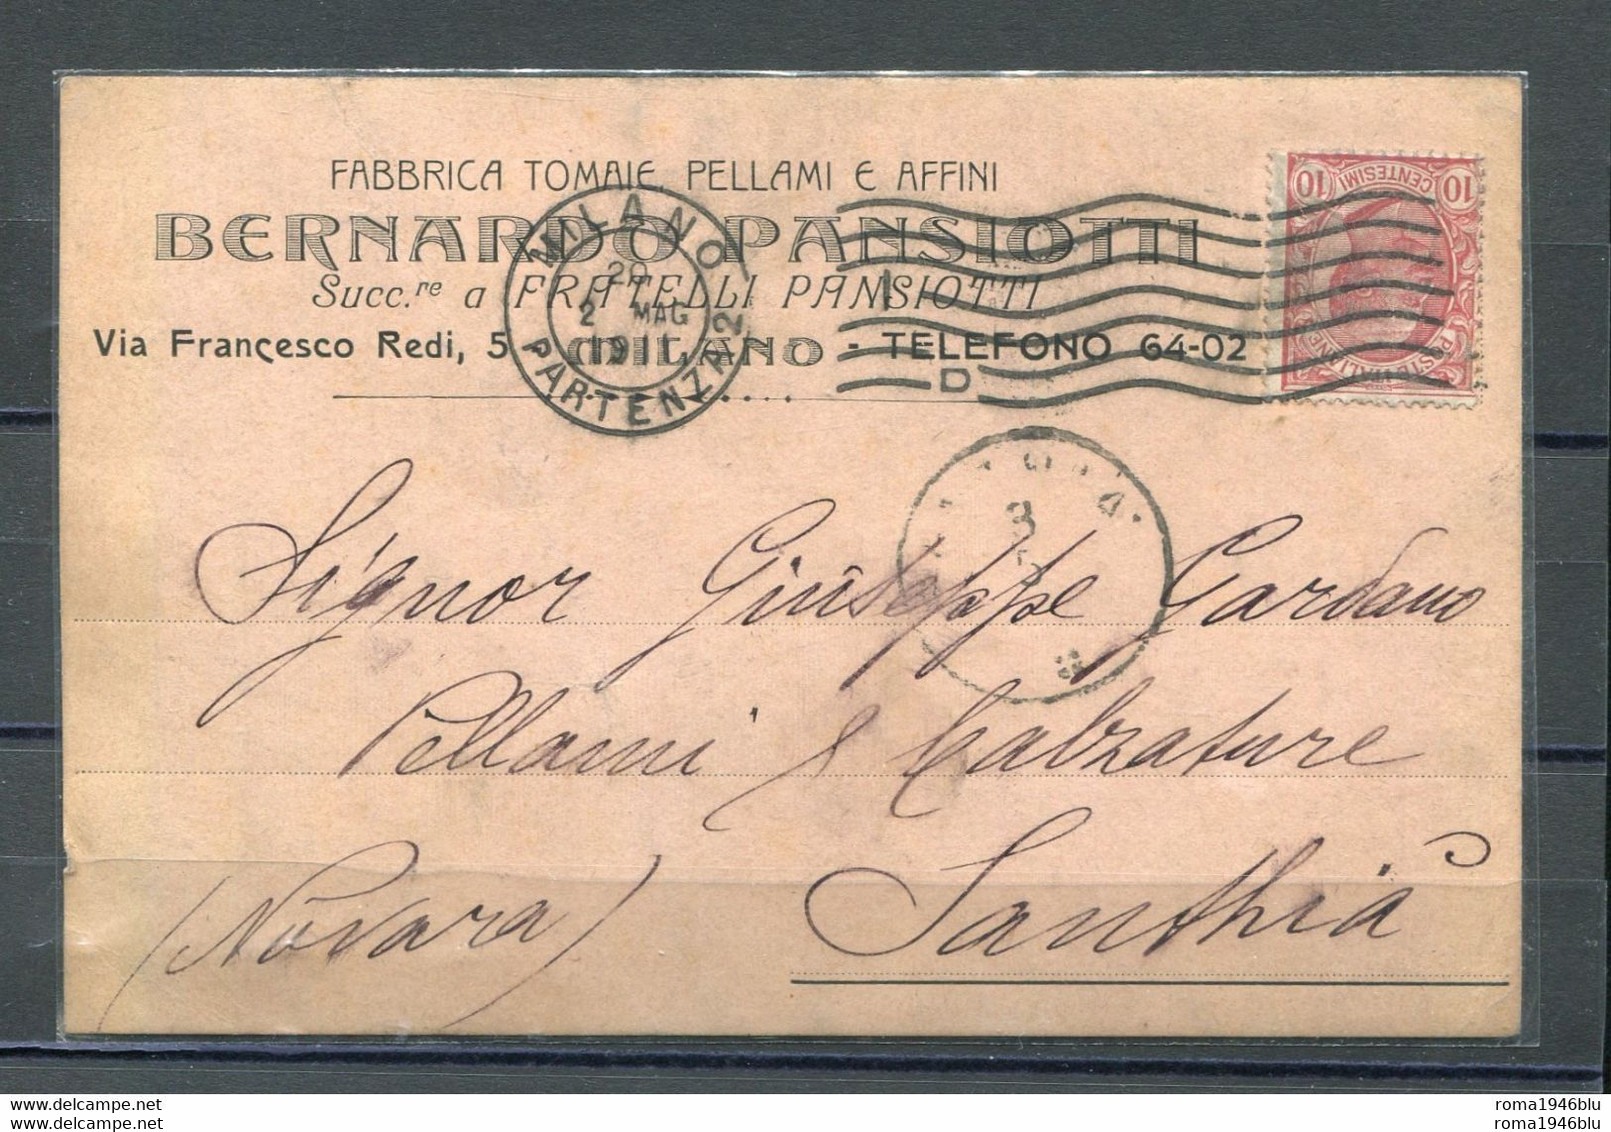 FABBRICA TOMAIE, PELLAMI E AFFINI
BERNARDO PANSIOTTI
Succ.re a FRATELLI PANSIOTTI
Via Francesco Redi, 5 - MILANO - TELEFONO 64-02
MILANO PARTENZA
20
2 MAG
1911
D
10 10
CENTESIMI
POSTE ITALIANE
3
Signor Giuseppe Gardano
Pellami & Calzature
Santhià
(Novara)
delcampe.net
delcampe.net
roma1946blu
roma1946blu